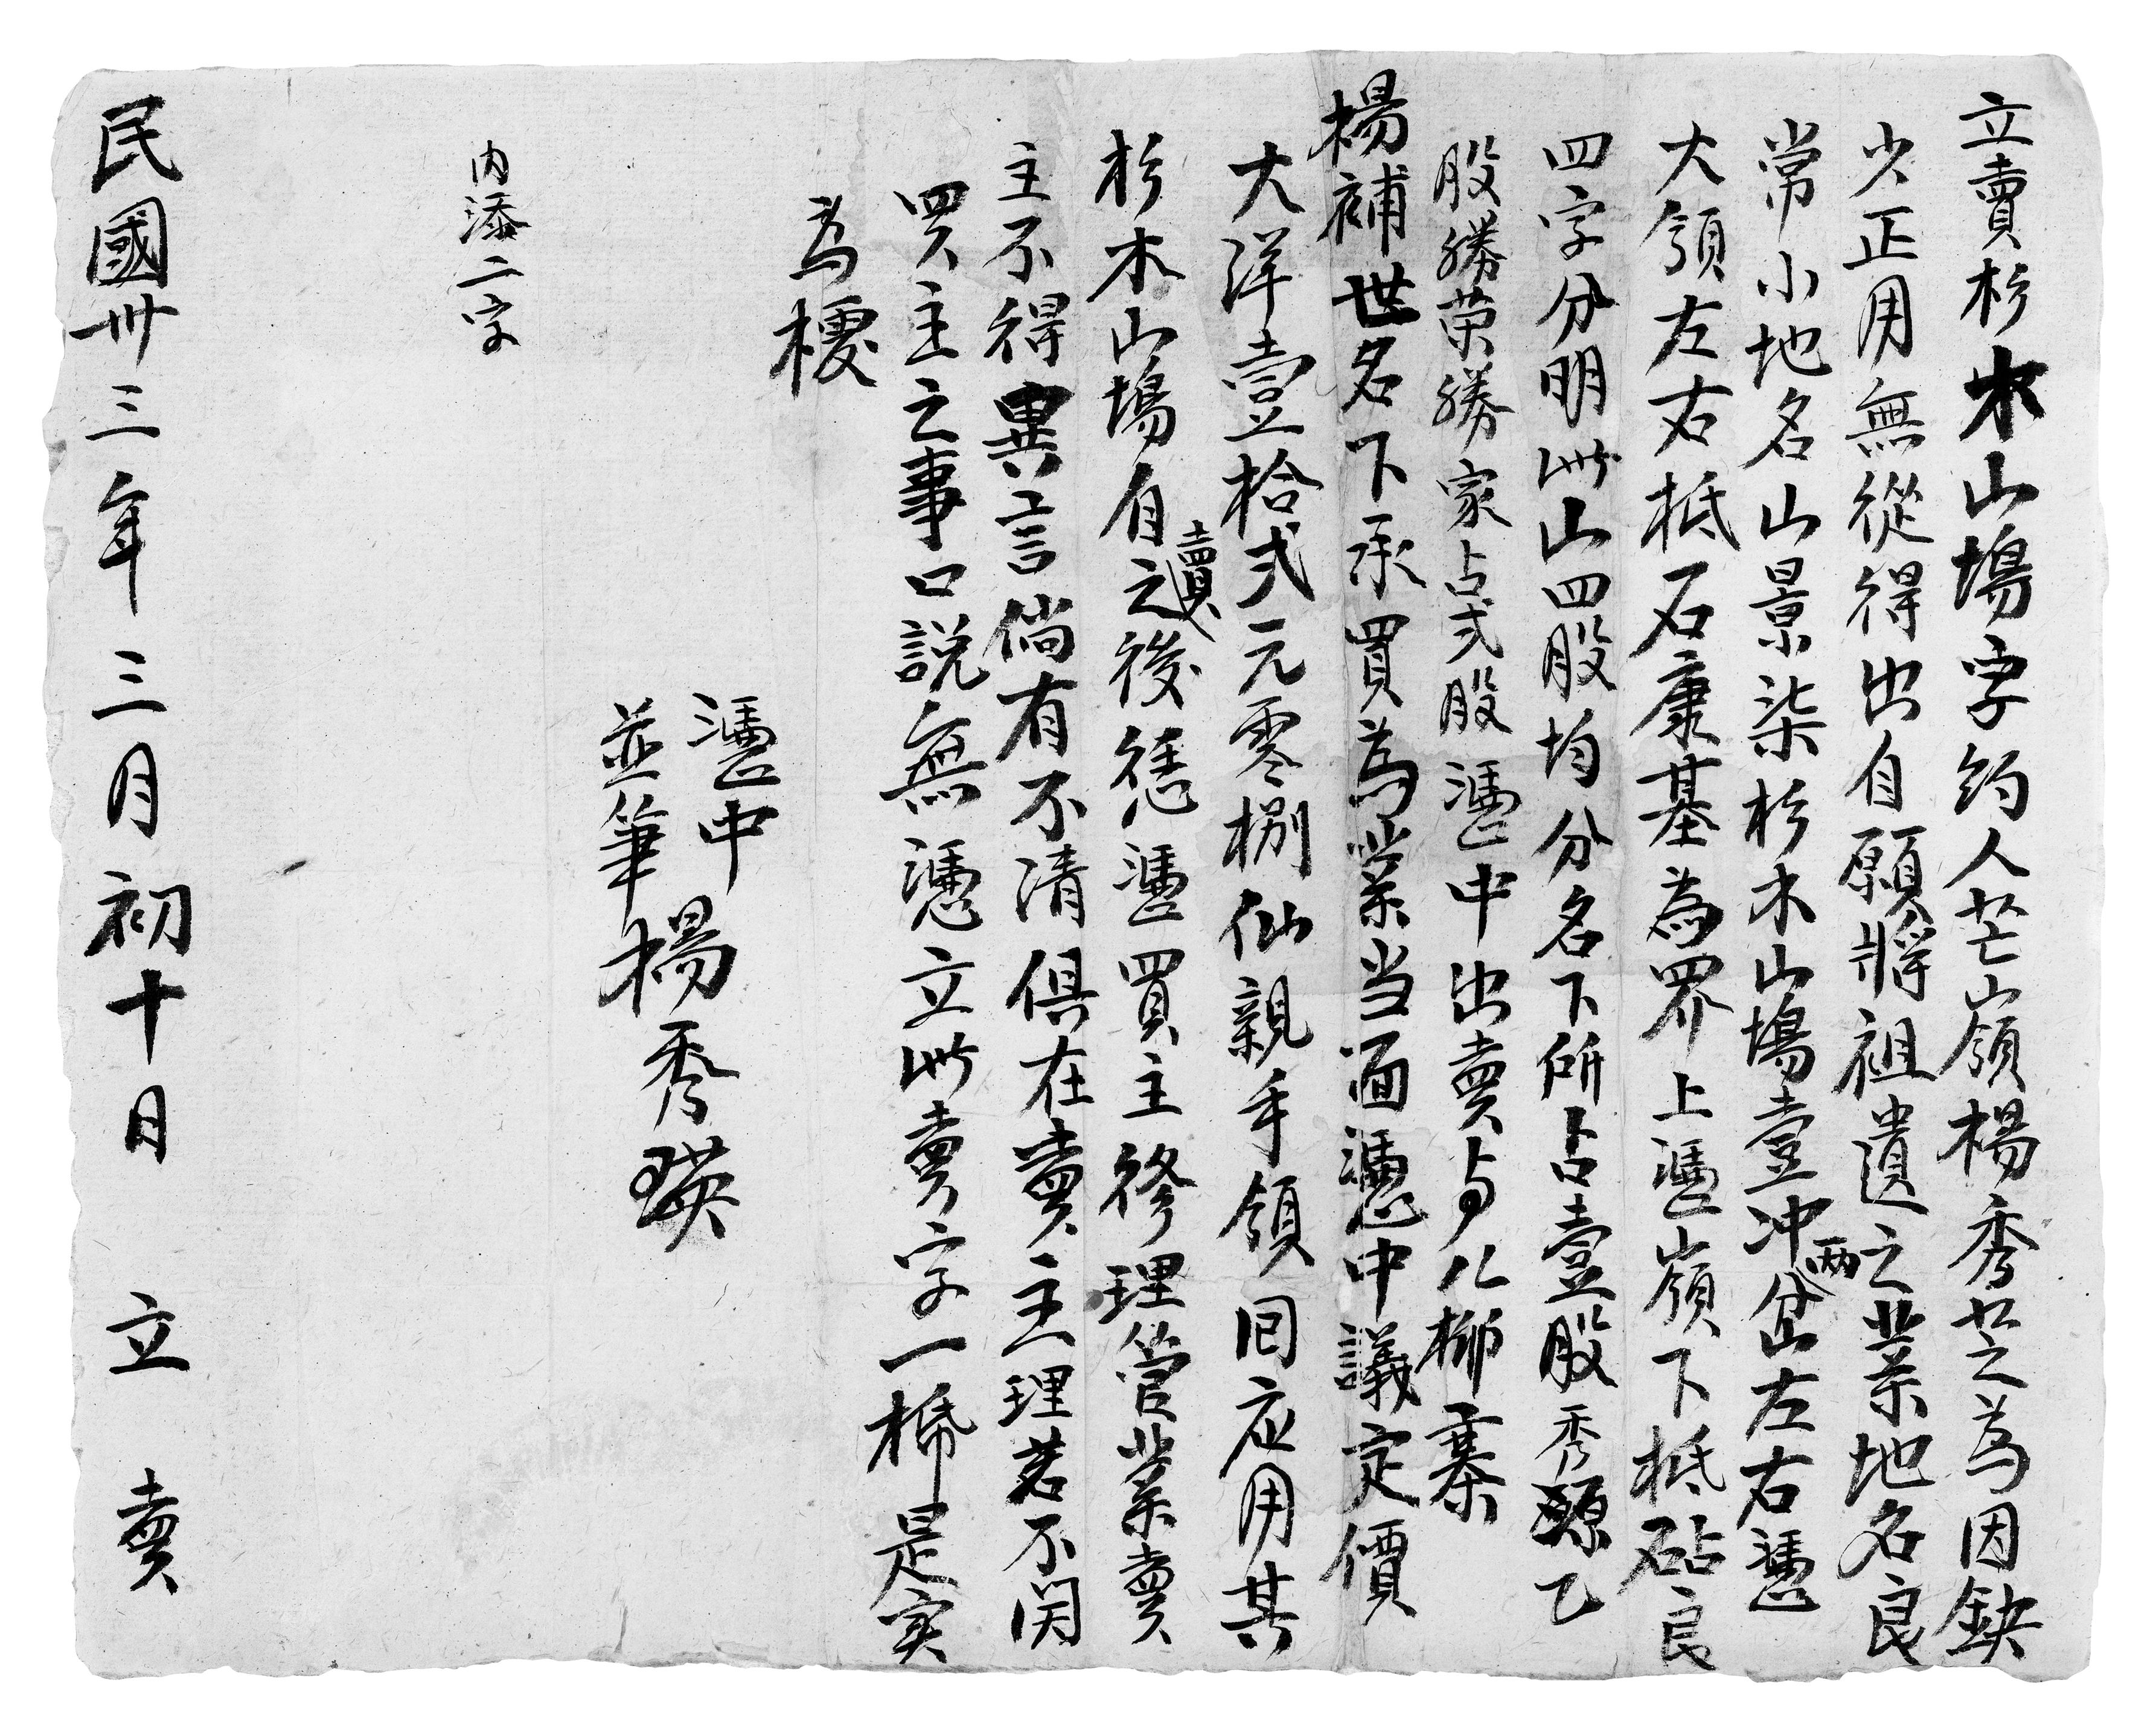 立賣杉木山塲字約人芒嶺楊秀芝為因缺
少正用無從得出自願將祖遺之業地名良
常小地名山景柒杉木山塲壹冲兩岔左右憑
大領左右抵石康基為界上憑嶺下抵砧良
四字分明此山四股均分名下所占壹股秀源乙
股勝荣勝家占弍股憑中出賣与八柳寨
楊補世名下承買為業当面憑中議定價
大洋壹拾弍元零捌仙親手領囘应用其
杉木山塲自賣之後憑買主修理管業賣
主不得異言倘有不清俱在賣主理若不関
買主之事口説無憑立此賣字一㭲是实
為㯲
憑中
並筆楊秀瑛
内添二字
民國卅三年三月初十日立賣